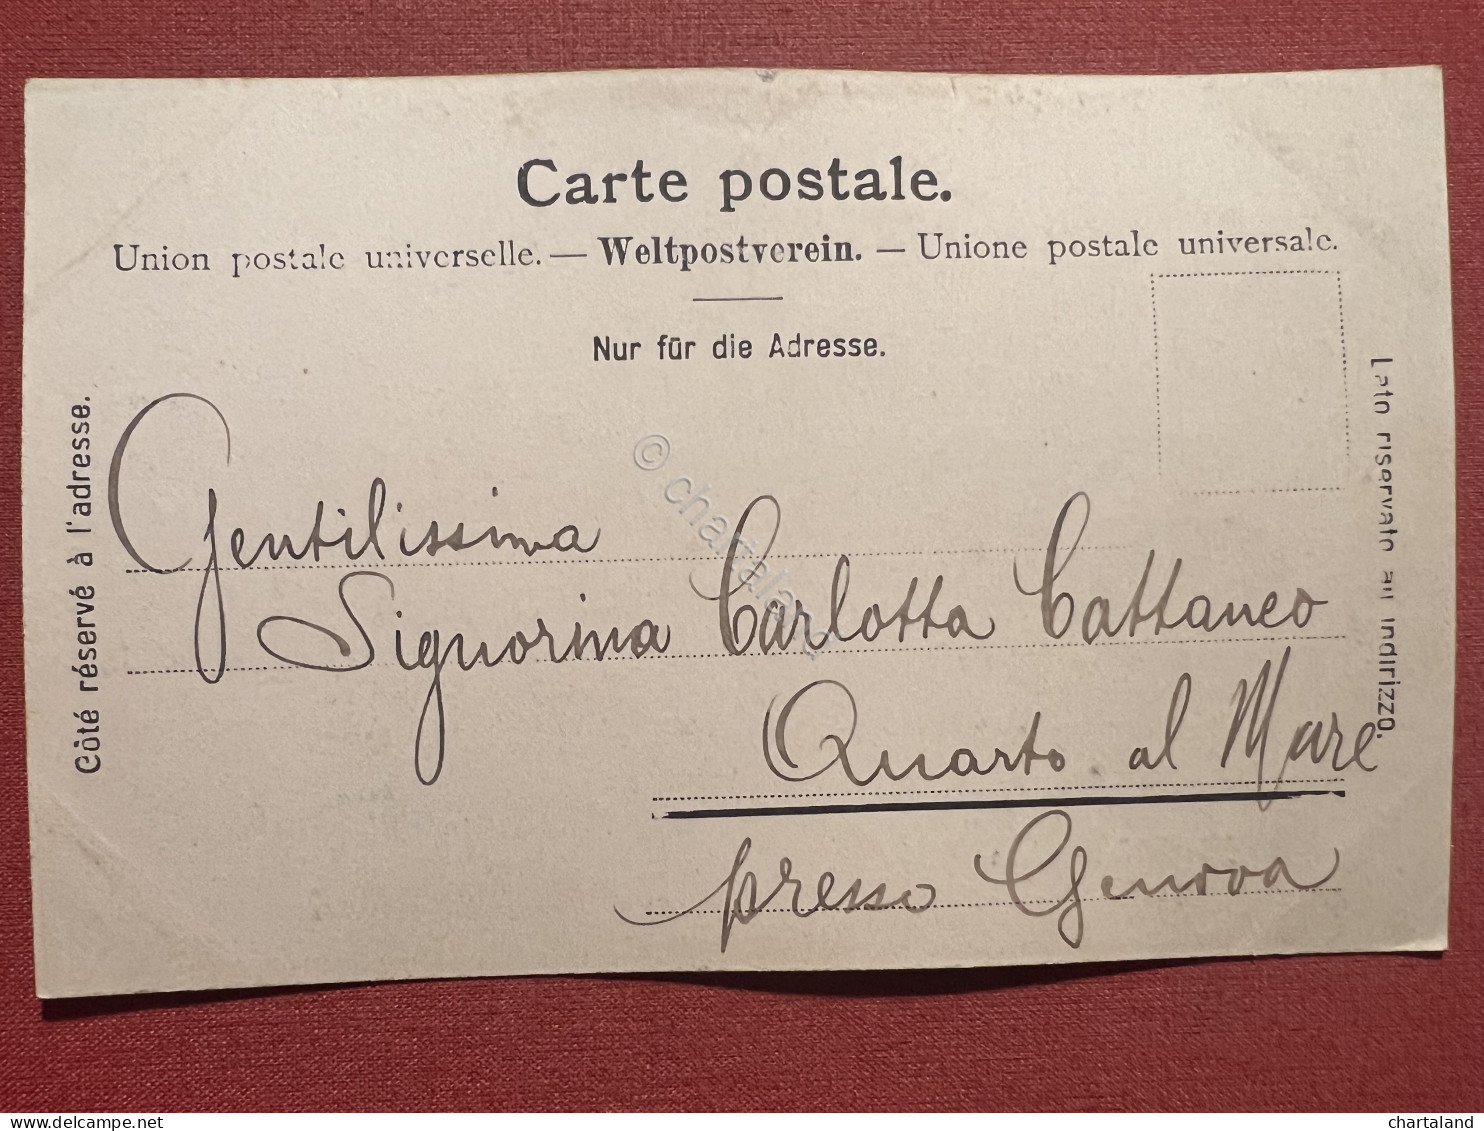 Carte postale.
Union postale universelle. — Weltpostverein. — Unione postale universale.
Nur für die Adresse.
Côté réservé à l'adresse.
Lato riservato all indirizzo.
Gentilissima
Signorina Carlotta Cattaneo
Quarto al Mare
presso Genova
© chartaland
chartaland